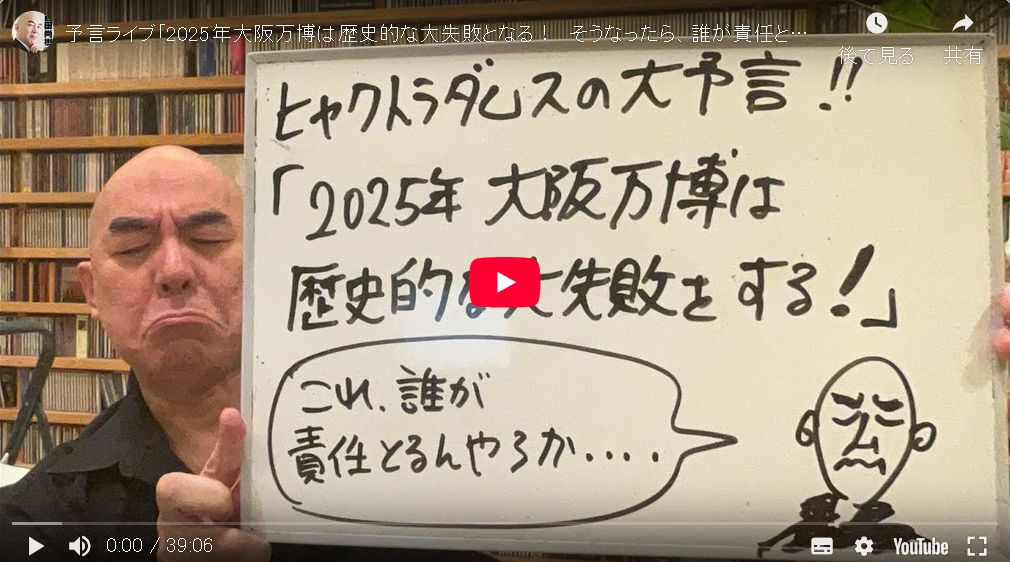 予言ライブ「2025年大阪万博は歴史的な大失敗となる！　そうなったら、誰が責任と…
後で見る
共有
ヒャクトラダムスの大予言!!
「2025年 大阪万博は
歴史的な大失敗をする!」
これ、誰が
責任とるんやろか・・・・
0:00 / 39:06
YouTube